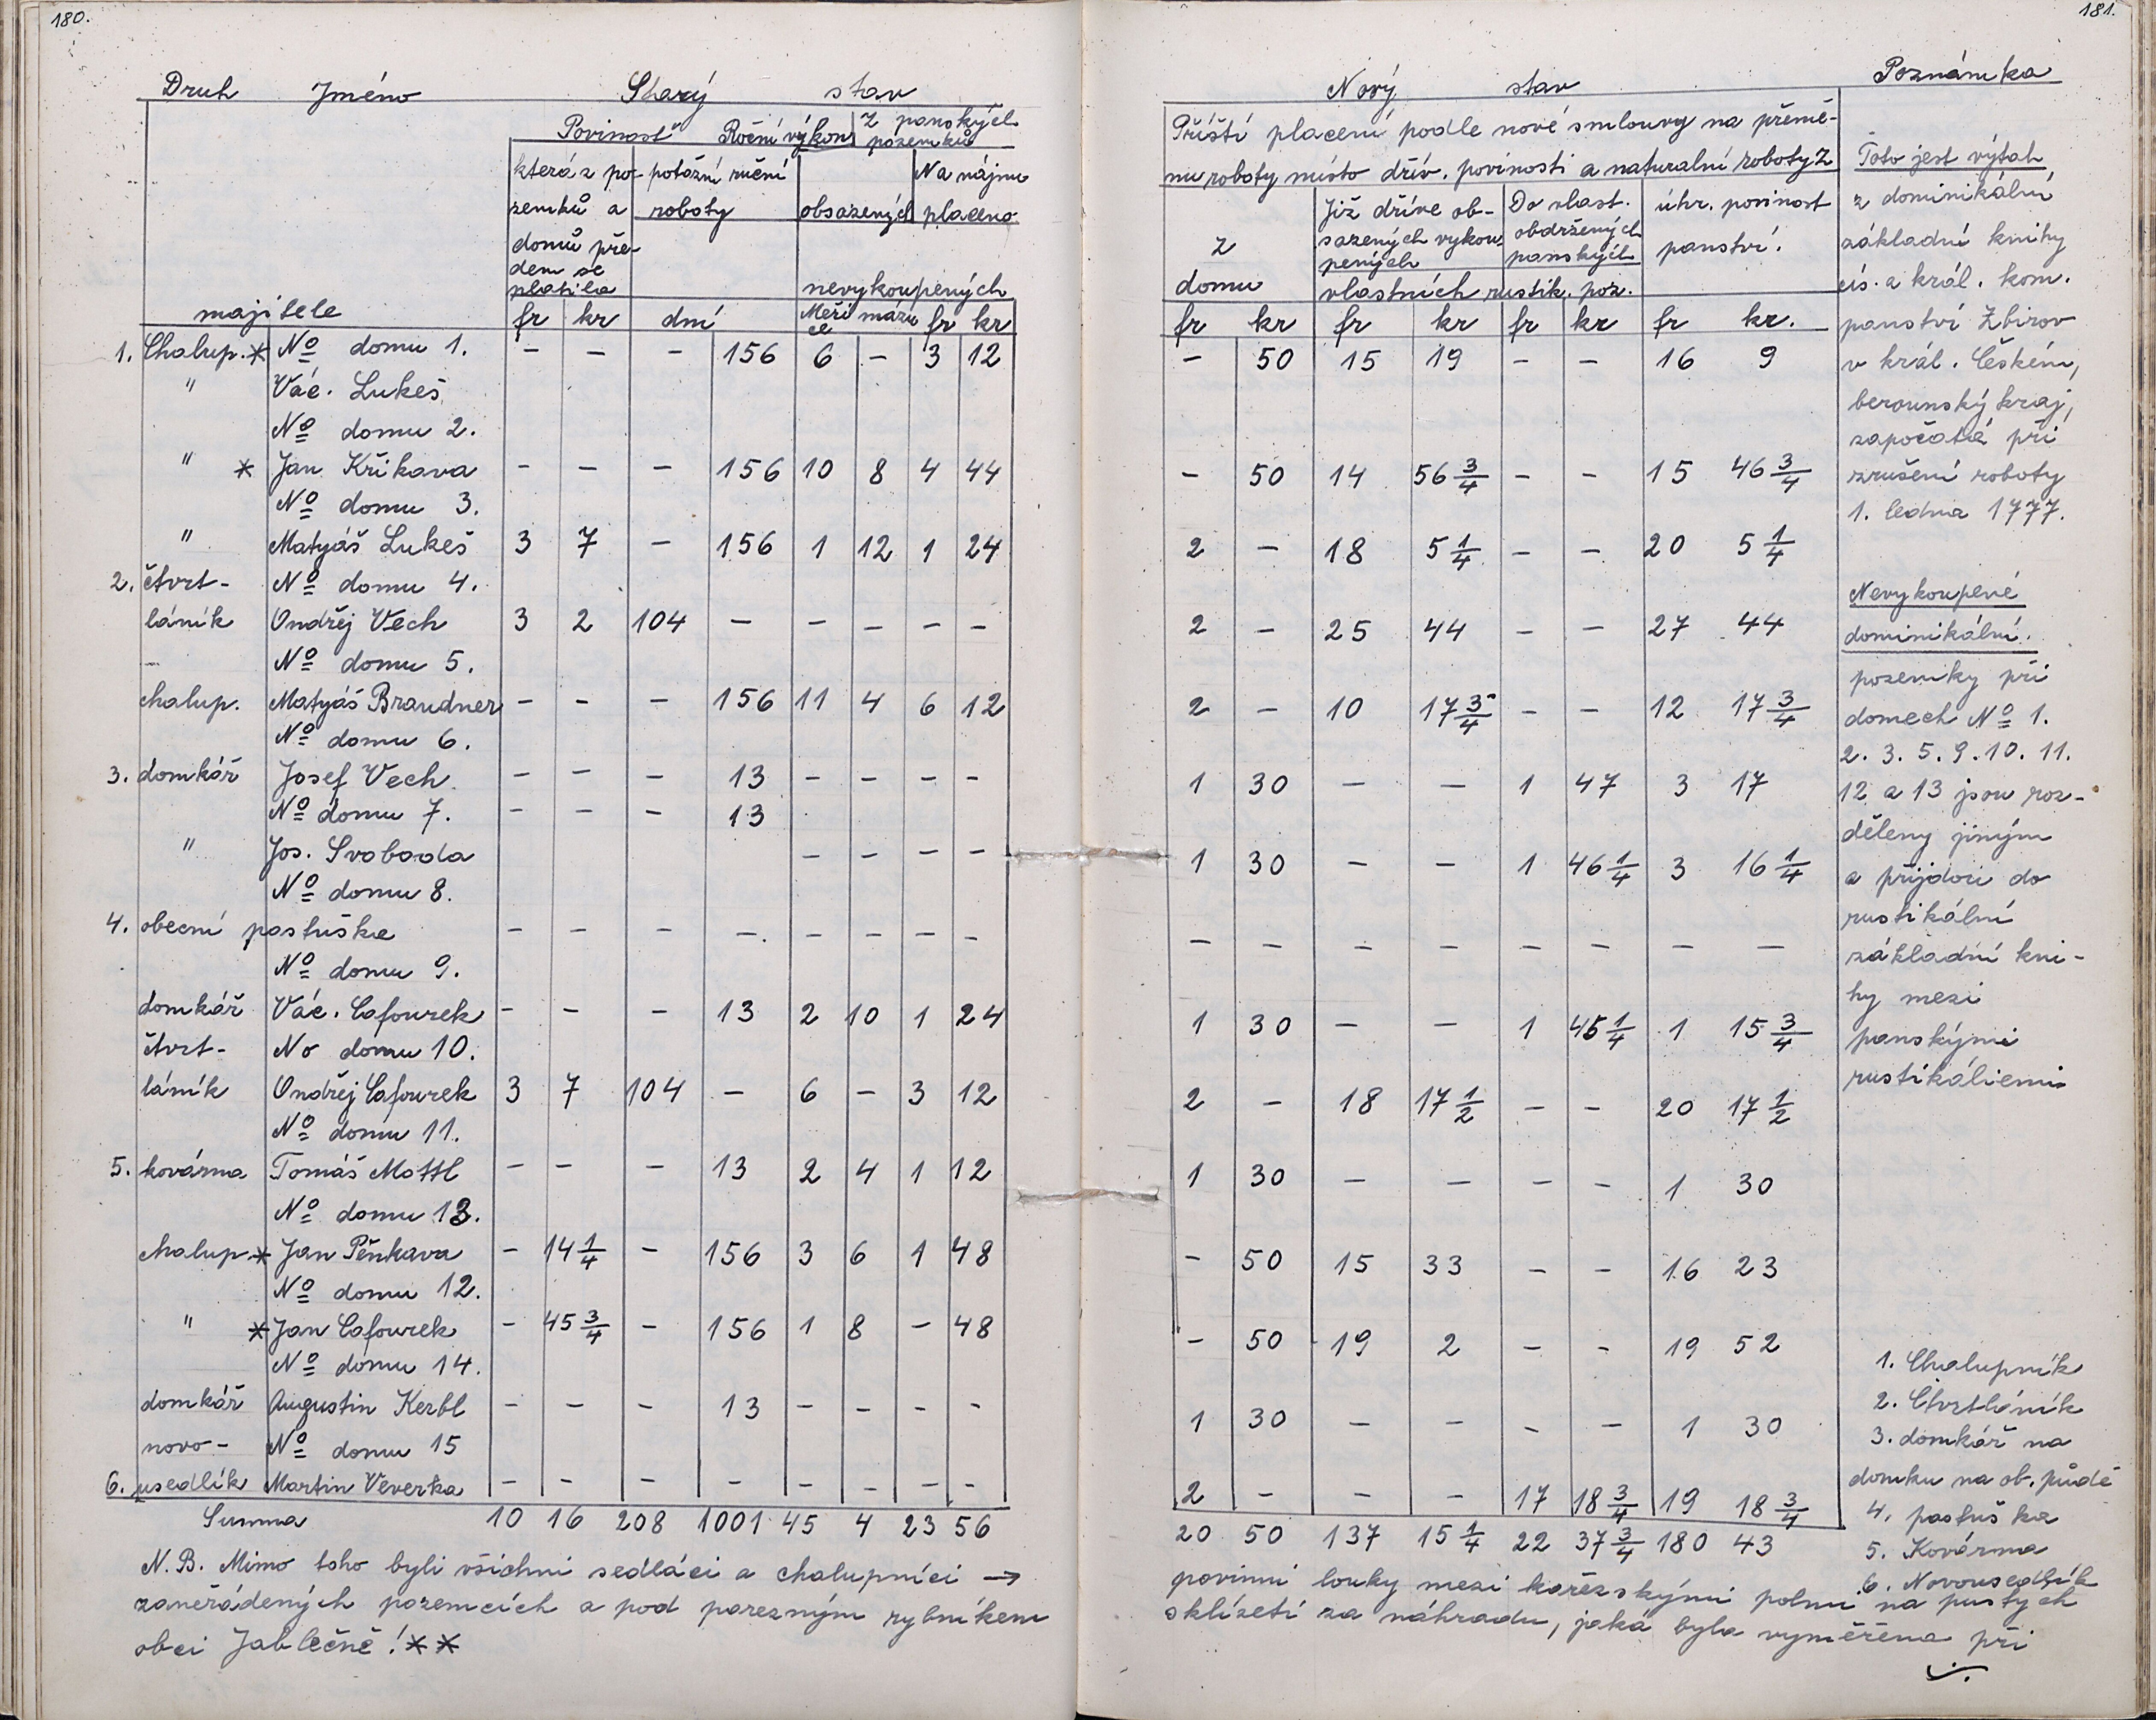 180.
Druh Jméno Starý stav
Povinosť Roční výkon z panských
pozemků
která z po- potažní ruční Na nájmu
zemků a roboty obsazených placeno
domů pře-
dem se
platila nevykoupených
majitele fr kr dní Měři mázů fr kr
ce
1. Chalup. * No domu 1. - - - 156 6 - 3 12
" Vác. Lukeš
No domu 2.
" * Jan Křikava - - - 156 10 8 4 44
No domu 3.
" Matyáš Lukeš 3 7 - 156 1 12 1 24
2. čtvrt- No domu 4.
láník Ondřej Vech 3 2 104 - - - - -
No domu 5.
chalup. Matyáš Brandner - - - 156 11 4 6 12
No domu 6.
3. domkář Josef Vech - - - 13 - - - -
No domu 7. - - - 13
" Jos. Svoboda - - - -
No domu 8.
4. obecní pastuška - - - - - - - -
No domu 9.
domkář Vác. Cafourek - - - 13 2 10 1 24
čtvrt- No domu 10.
láník Ondřej Cafourek 3 7 104 - 6 - 3 12
No domu 11.
5. kovárna Tomáš Mottl - - - 13 2 4 1 12
No domu 13.
chalup * Jan Pěnkava - 14 1/4 - 156 3 6 1 48
No domu 12.
" * Jan Cafourek - 45 3/4 - 156 1 8 - 48
No domu 14.
domkář Augustin Kerbl - - - 13 - - - -
novo- No domu 15
6. usedlík Martin Veverka - - - - - - - -
Summa 10 16 208 1001 45 4 23 56
N.B. Mimo toho byli všichni sedláci a chalupníci →
zaneřáděných pozemcích a pod parezným rybníkem
obci Jablečně! **
181.
Nový stav Poznámka
Příští placení podle nové smlouvy na přemě-
nu roboty místo dřív. povinosti a naturalní roboty z
Již dříve ob- Do vlast. úhr. povinost
z sazených vykou obdržených panství.
pených panských
domu vlastních rustik. poz.
fr kr fr kr fr kr fr kr.
- 50 15 19 - - 16 9
- 50 14 56 3/4 - - 15 46 3/4
2 - 18 5 1/4 - - 20 5 1/4
2 - 25 44 - - 27 44
2 - 10 17 3/4 - - 12 17 3/4
1 30 - - 1 47 3 17
1 30 - - 1 46 1/4 3 16 1/4
- - - - - - - -
1 30 - - 1 45 1/4 1 15 3/4
2 - 18 17 1/2 - - 20 17 1/2
1 30 - - - - 1 30
- 50 15 33 - - 16 23
- 50 19 2 - - 19 52
1 30 - - - - 1 30
2 - - - 17 18 3/4 19 18 3/4
20 50 137 15 1/4 22 37 3/4 180 43
Toto jest výtah
z dominikální
základní knihy
cís. a král. kom.
panství Zbirov
v král. Českém,
berounský kraj,
započatá při
zrušení roboty
1. ledna 1777.
Nevykoupené
dominikální.
pozemky při
domech No 1.
2. 3. 5. 9. 10. 11.
12 a 13 jsou roz-
děleny jiným
a přijdou do
rustikální
základní kni-
hy mezi
panskými
rustikáliemi
1. Chalupník
2. Čtvrtláník
3. domkář na
domku na ob. půdě
4. pastuška
5. Kovárna
6. Novousedlík
povinni louky mezi karézskými polmi na pustých
sklízeti za náhradu, jaká byla vyměřena při
./.